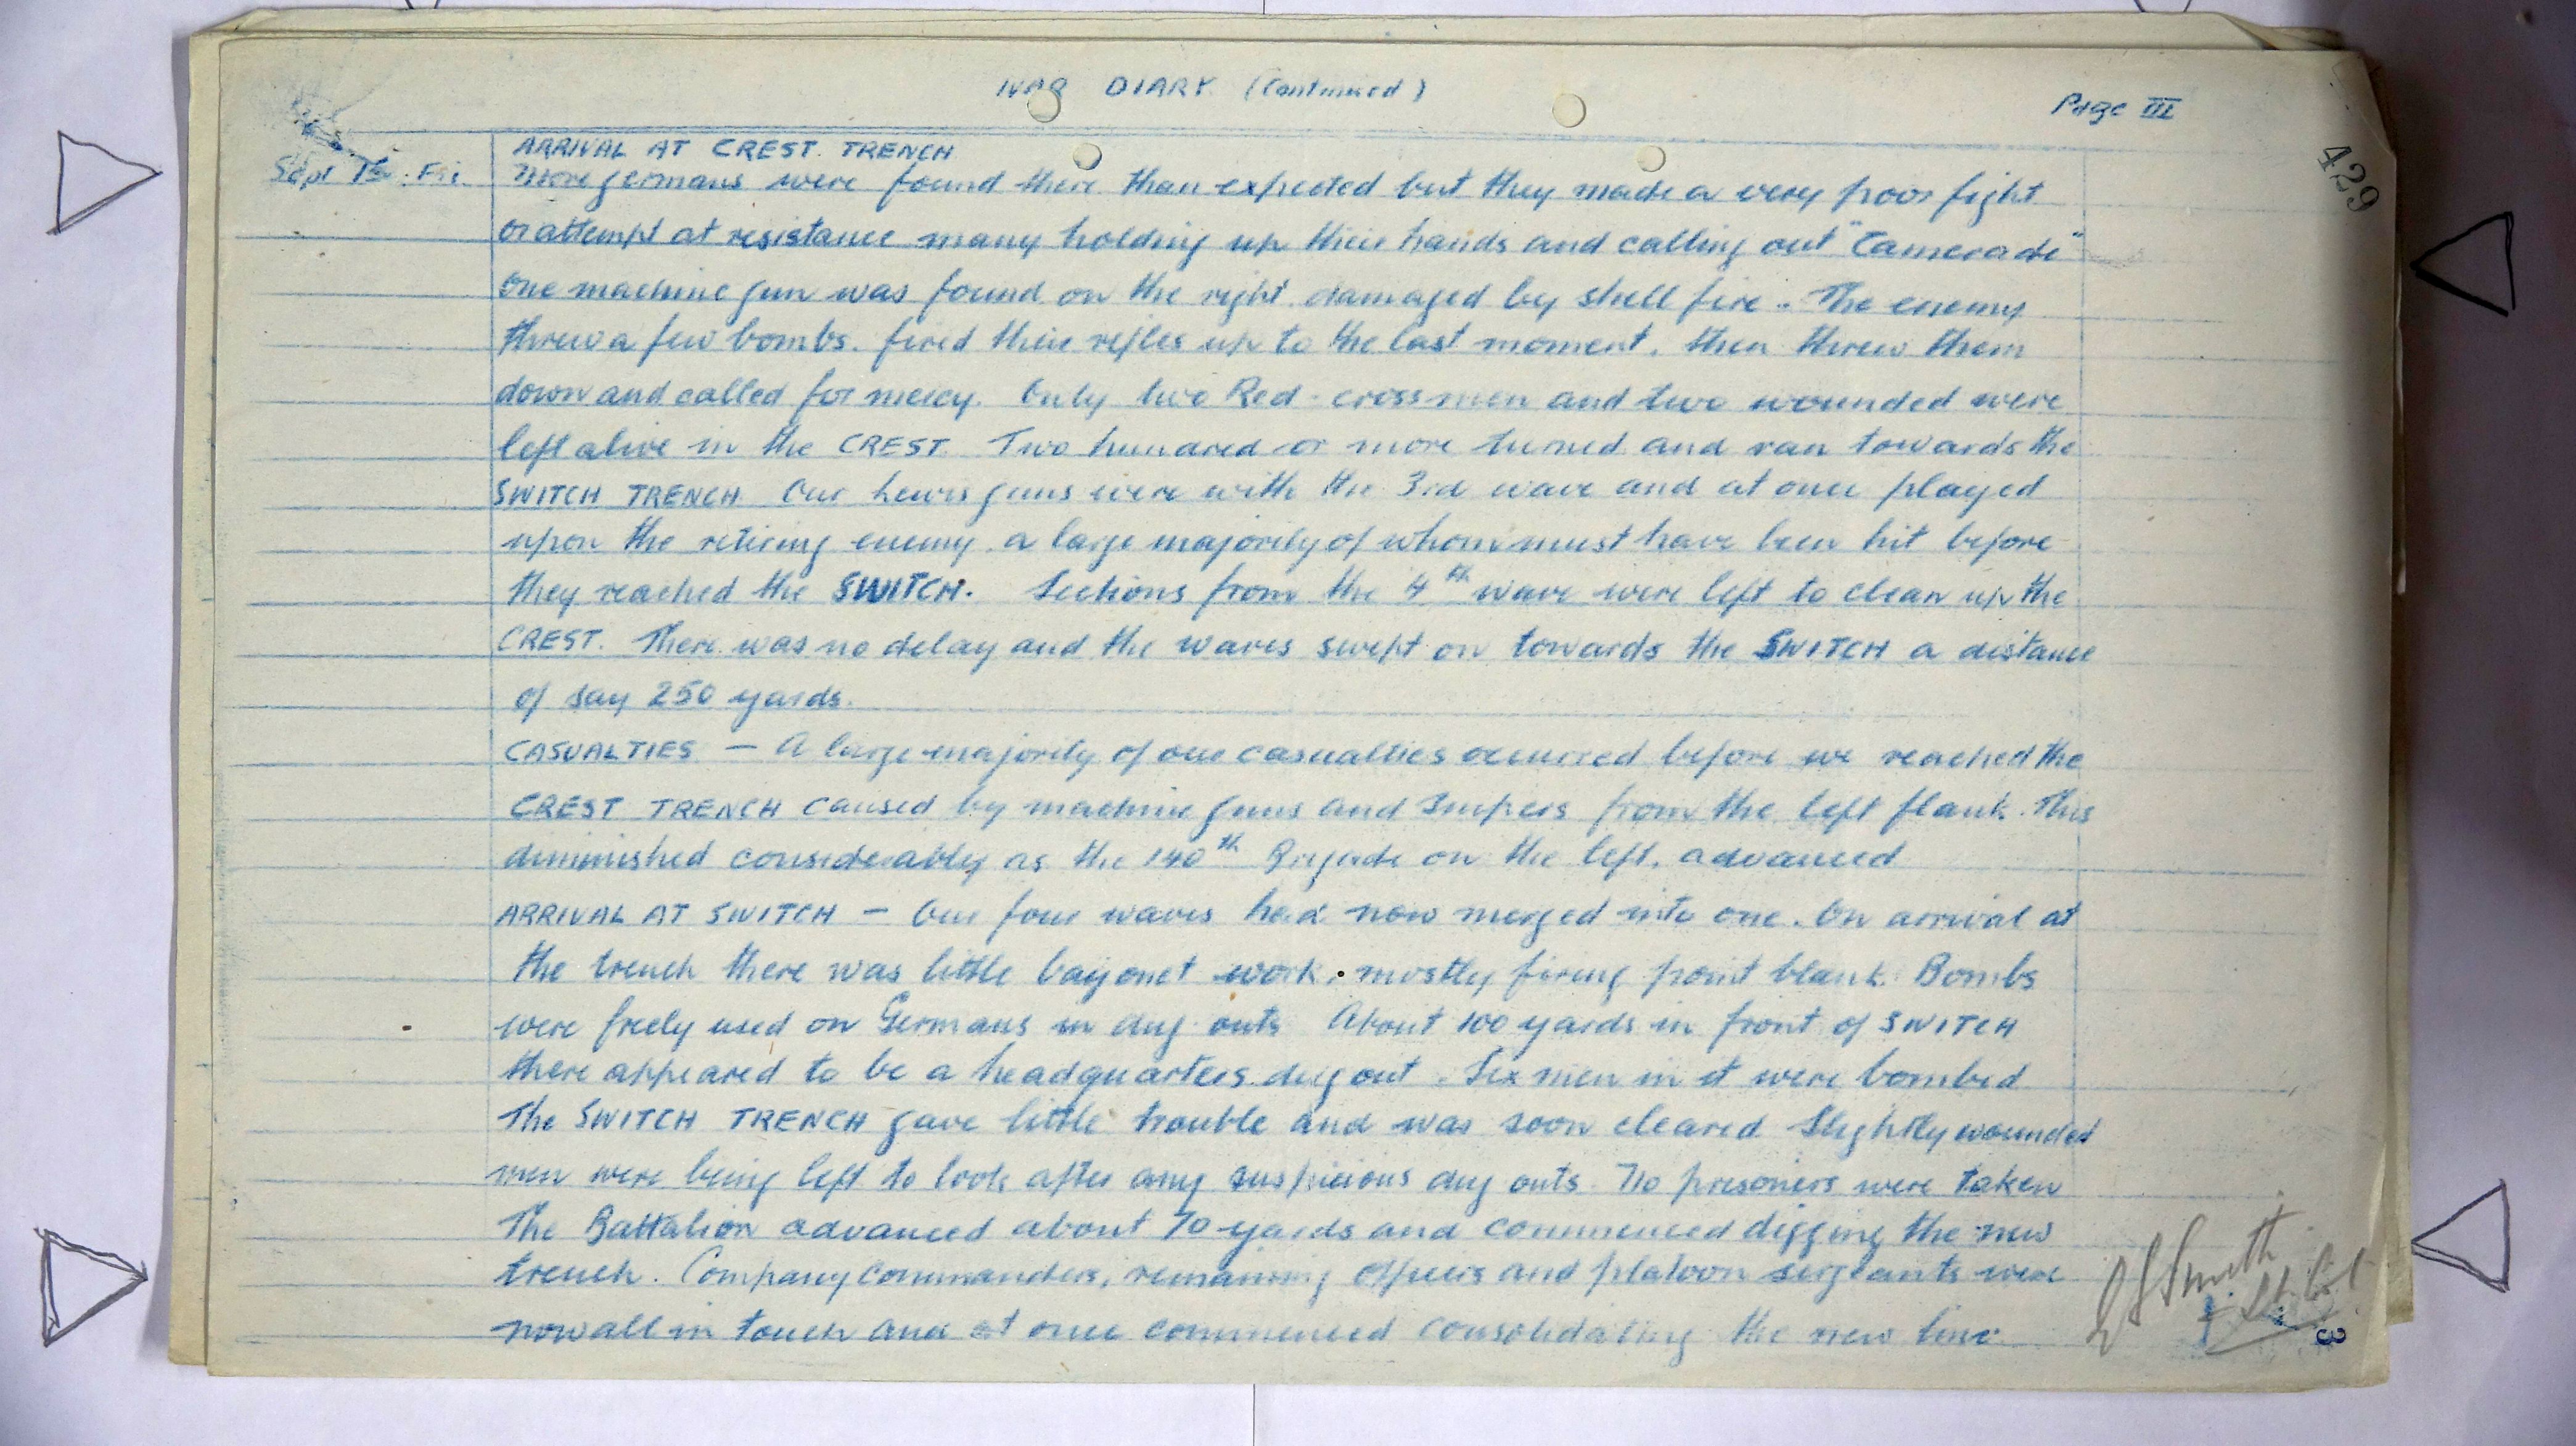 WAR DIARY. (Continued)
Page III
429
ARRIVAL AT CREST. TRENCH
Sept Fri. More germans were found there than expected but they made a very poor fight
or attempt at resistance many holding up their hands and calling out "Camerade"
One machine gun was found on the right damaged by shell fire. The enemy
threw a few bombs. fired their rifles up to the last moment, then threw them
down and called for mercy. Only two Red-cross men and two wounded were
left alive in the CREST. Two hundred or more turned and ran towards the
SWITCH TRENCH. Our Lewis guns were with the 3rd wave and at once played
upon the retiring enemy, a large majority of whom must have been hit before
they reached the SWITCH. Sections from the 4th wave were left to clean up the
CREST. There was no delay and the waves swept on towards the SWITCH a distance
of say 250 yards.
CASUALTIES — A large majority of our casualties occurred before we reached the
CREST TRENCH caused by machine guns and Snipers from the left flank. This
diminished considerably as the 140th Brigade on the left, advanced
ARRIVAL AT SWITCH — Our four waves had now merged into one. On arrival at
the trench there was little bayonet work. mostly firing point blank. Bombs
were freely used on Germans in dug outs About 100 yards in front of SWITCH
there appeared to be a headquarters dug out. Six men in it were bombed
The SWITCH TRENCH gave little trouble and was soon cleared Slightly wounded
men were being left to look after any suspicious dug outs. No prisoners were taken
The Battalion advanced about 70 yards and commenced digging the new
trench. Company Commanders, remaining officers and platoon sergeants were
now all in touch and at once commenced consolidating the new line.
Smith
Lt. Col
3